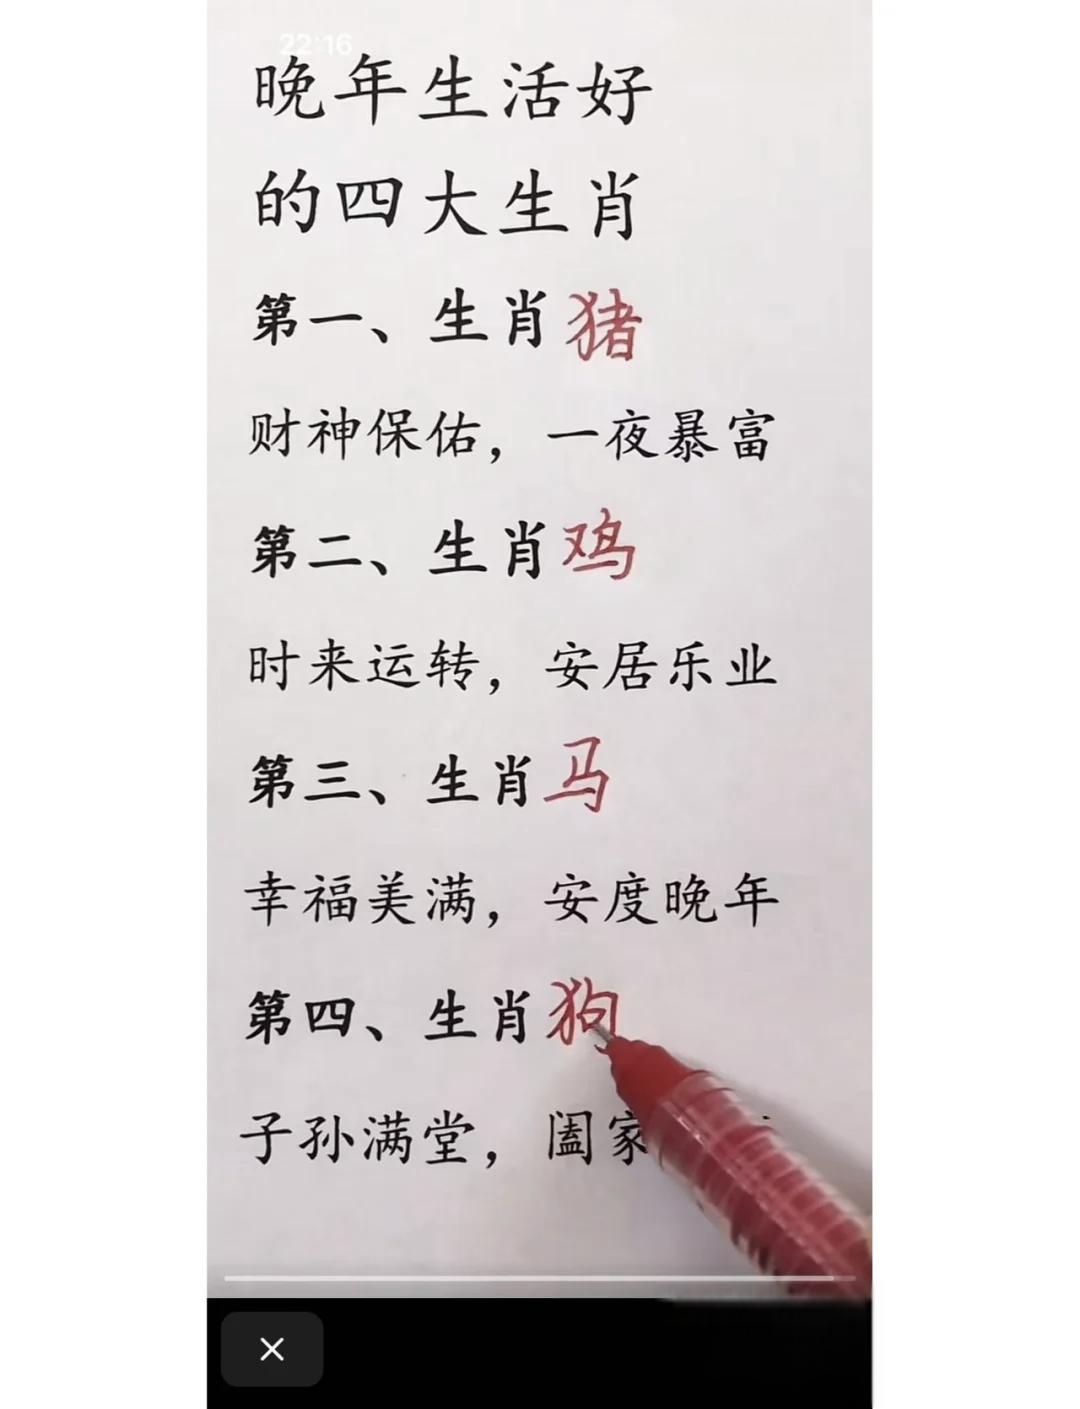 22:16
晚年生活好
的四大生肖
第一、生肖猪
财神保佑，一夜暴富
第二、生肖鸡
时来运转，安居乐业
第三、生肖马
幸福美满，安度晚年
第四、生肖狗
子孙满堂，阖家